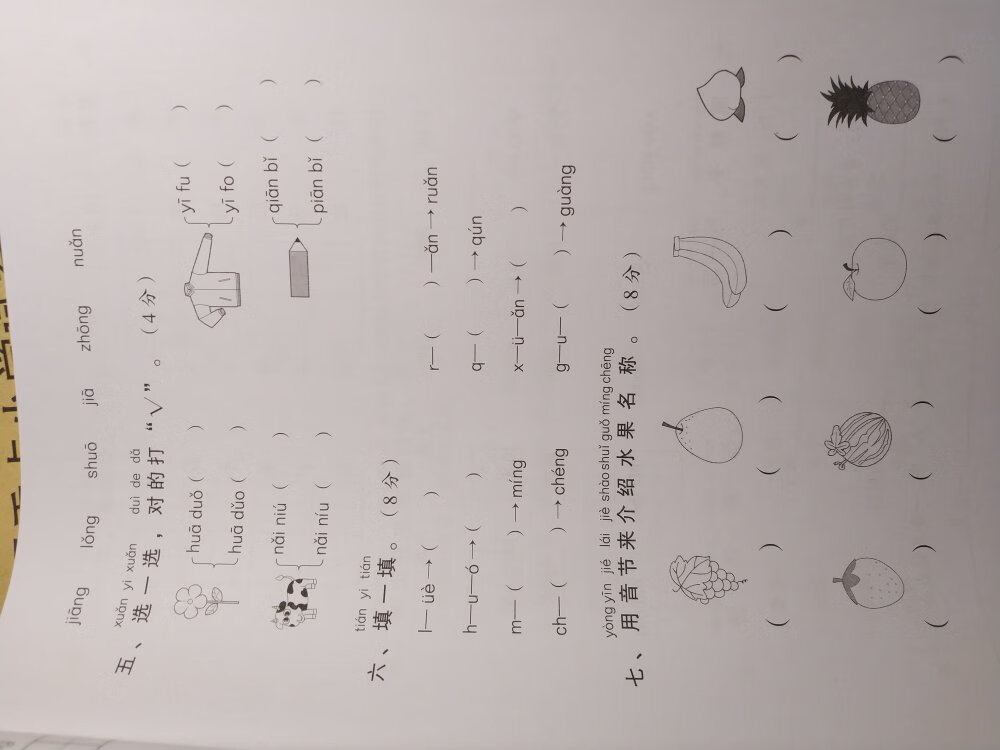 jiāng lǒng shuō jiā zhōng nuǎn
xuǎn yi xuǎn duì de dǎ
五、选一选，对的打“√”。（4分）
huā duǒ（ ） yī fu（ ）
huā dǔo（ ） yī fo（ ）
nǎi niú（ ） qiān bǐ（ ）
nǎi níu（ ） piān bǐ（ ）
tián yi tián
六、填一填。（8分）
l—üè→（ ） r—（ ）—ǎn→ruǎn
h—u—ó→（ ） q—（ ）→qún
m—（ ）→míng x—ü—ǎn→（ ）
ch—（ ）→chéng g—u—（ ）→guàng
yòng yīn jié lái jiè shào shuǐ guǒ míng chēng
七、用音节来介绍水果名称。（8分）
（ ）（ ）（ ）（ ）
（ ）（ ）（ ）（ ）